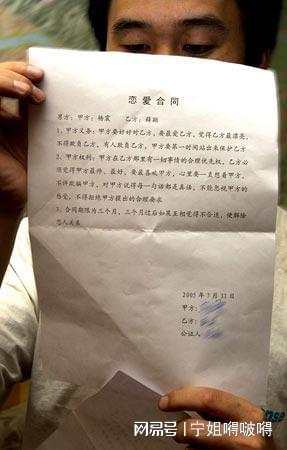 恋爱合同
男方：甲方：杨震 乙方：薛颖
1、甲方义务：甲方要好好对乙方，要最爱乙方，觉得乙方最漂亮，
不得欺负乙方，有人欺负乙方，甲方要第一时间站出来保护乙方
2、甲方权利：甲方在乙方那里有一切事情的合理优先权，乙方必
须觉得甲方最帅、最好，要最喜欢甲方，心里要一直想着甲方，
不许欺骗甲方，对甲方说得每一句话都是真话，不能忽视甲方的
感受，不得拒绝甲方提出的合理要求
3、合同期限为三个月，三个月过后如果互相觉得不合适，便解除
恋人关系
2005年7月31日
甲方：
乙方：
公证人：
网易号 | 宁姐嘚啵嘚